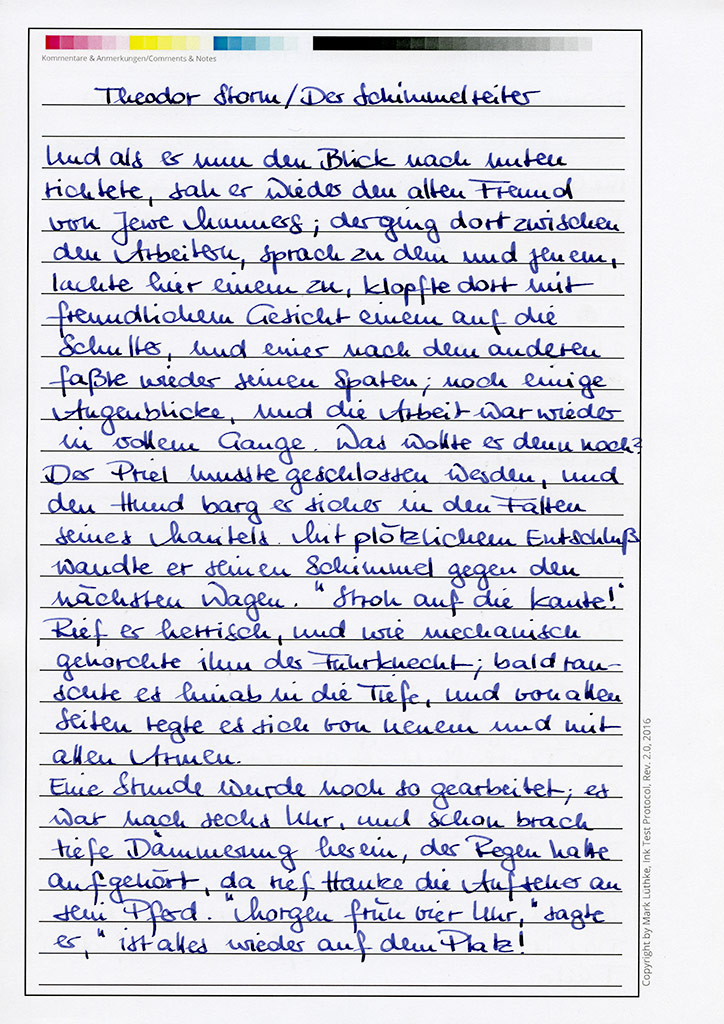 Kommentare & Anmerkungen/Comments & Notes
Theodor Storm/Der Schimmelreiter
Und als er nun den Blick nach unten
richtete, sah er wieder den alten Freund
von Jewe Manners; der ging dort zwischen
den Arbeitern, sprach zu dem und jenem,
lachte hier einem zu, klopfte dort mit
freundlichem Gesicht einem auf die
Schulter, und einer nach dem anderen
faßte wieder seinen Spaten; noch einige
Augenblicke, und die Arbeit war wieder
in vollem Gange. Was wollte er denn noch?
Der Priel musste geschlossen werden, und
den Hund barg er sicher in den Falten
seines Mantels. Mit plötzlichem Entschluß
wandte er seinen Schimmel gegen den
nächsten Wagen. "Stroh auf die Kante!"
Rief er herrisch, und wie mechanisch
gehorchte ihm der Fuhrknecht; bald rau-
schte es hinab in die Tiefe, und von allen
Seiten regte es sich von neuem und mit
allen Armen.
Eine Stunde wurde noch so gearbeitet; es
war nach sechs Uhr, und schon brach
tiefe Dämmerung herein, der Regen hatte
aufgehört, da rief Hauke die Aufseher an
sein Pferd. "Morgen früh vier Uhr," sagte
er, "ist alles wieder auf dem Platz!
Copyright by Mark Luthke, Ink Test Protocol, Rev. 2.0, 2016